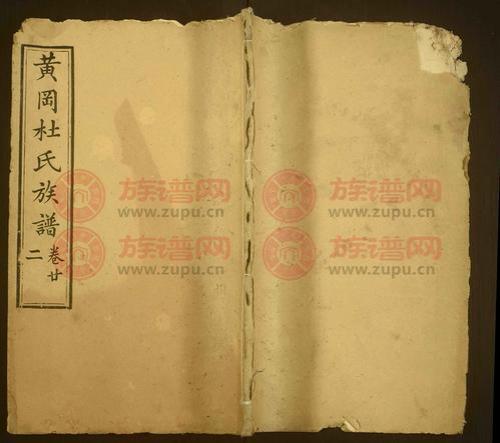 黄冈杜氏族譜
卷廿
二
族谱网
www.zupu.cn
族谱网
www.zupu.cn
族谱网
www.zupu.cn
族谱网
www.zupu.cn